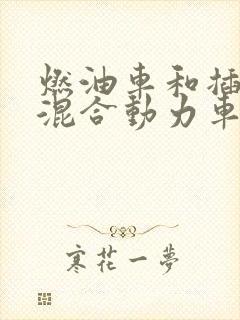 燃油車和插
混合動力車
寒花一夢